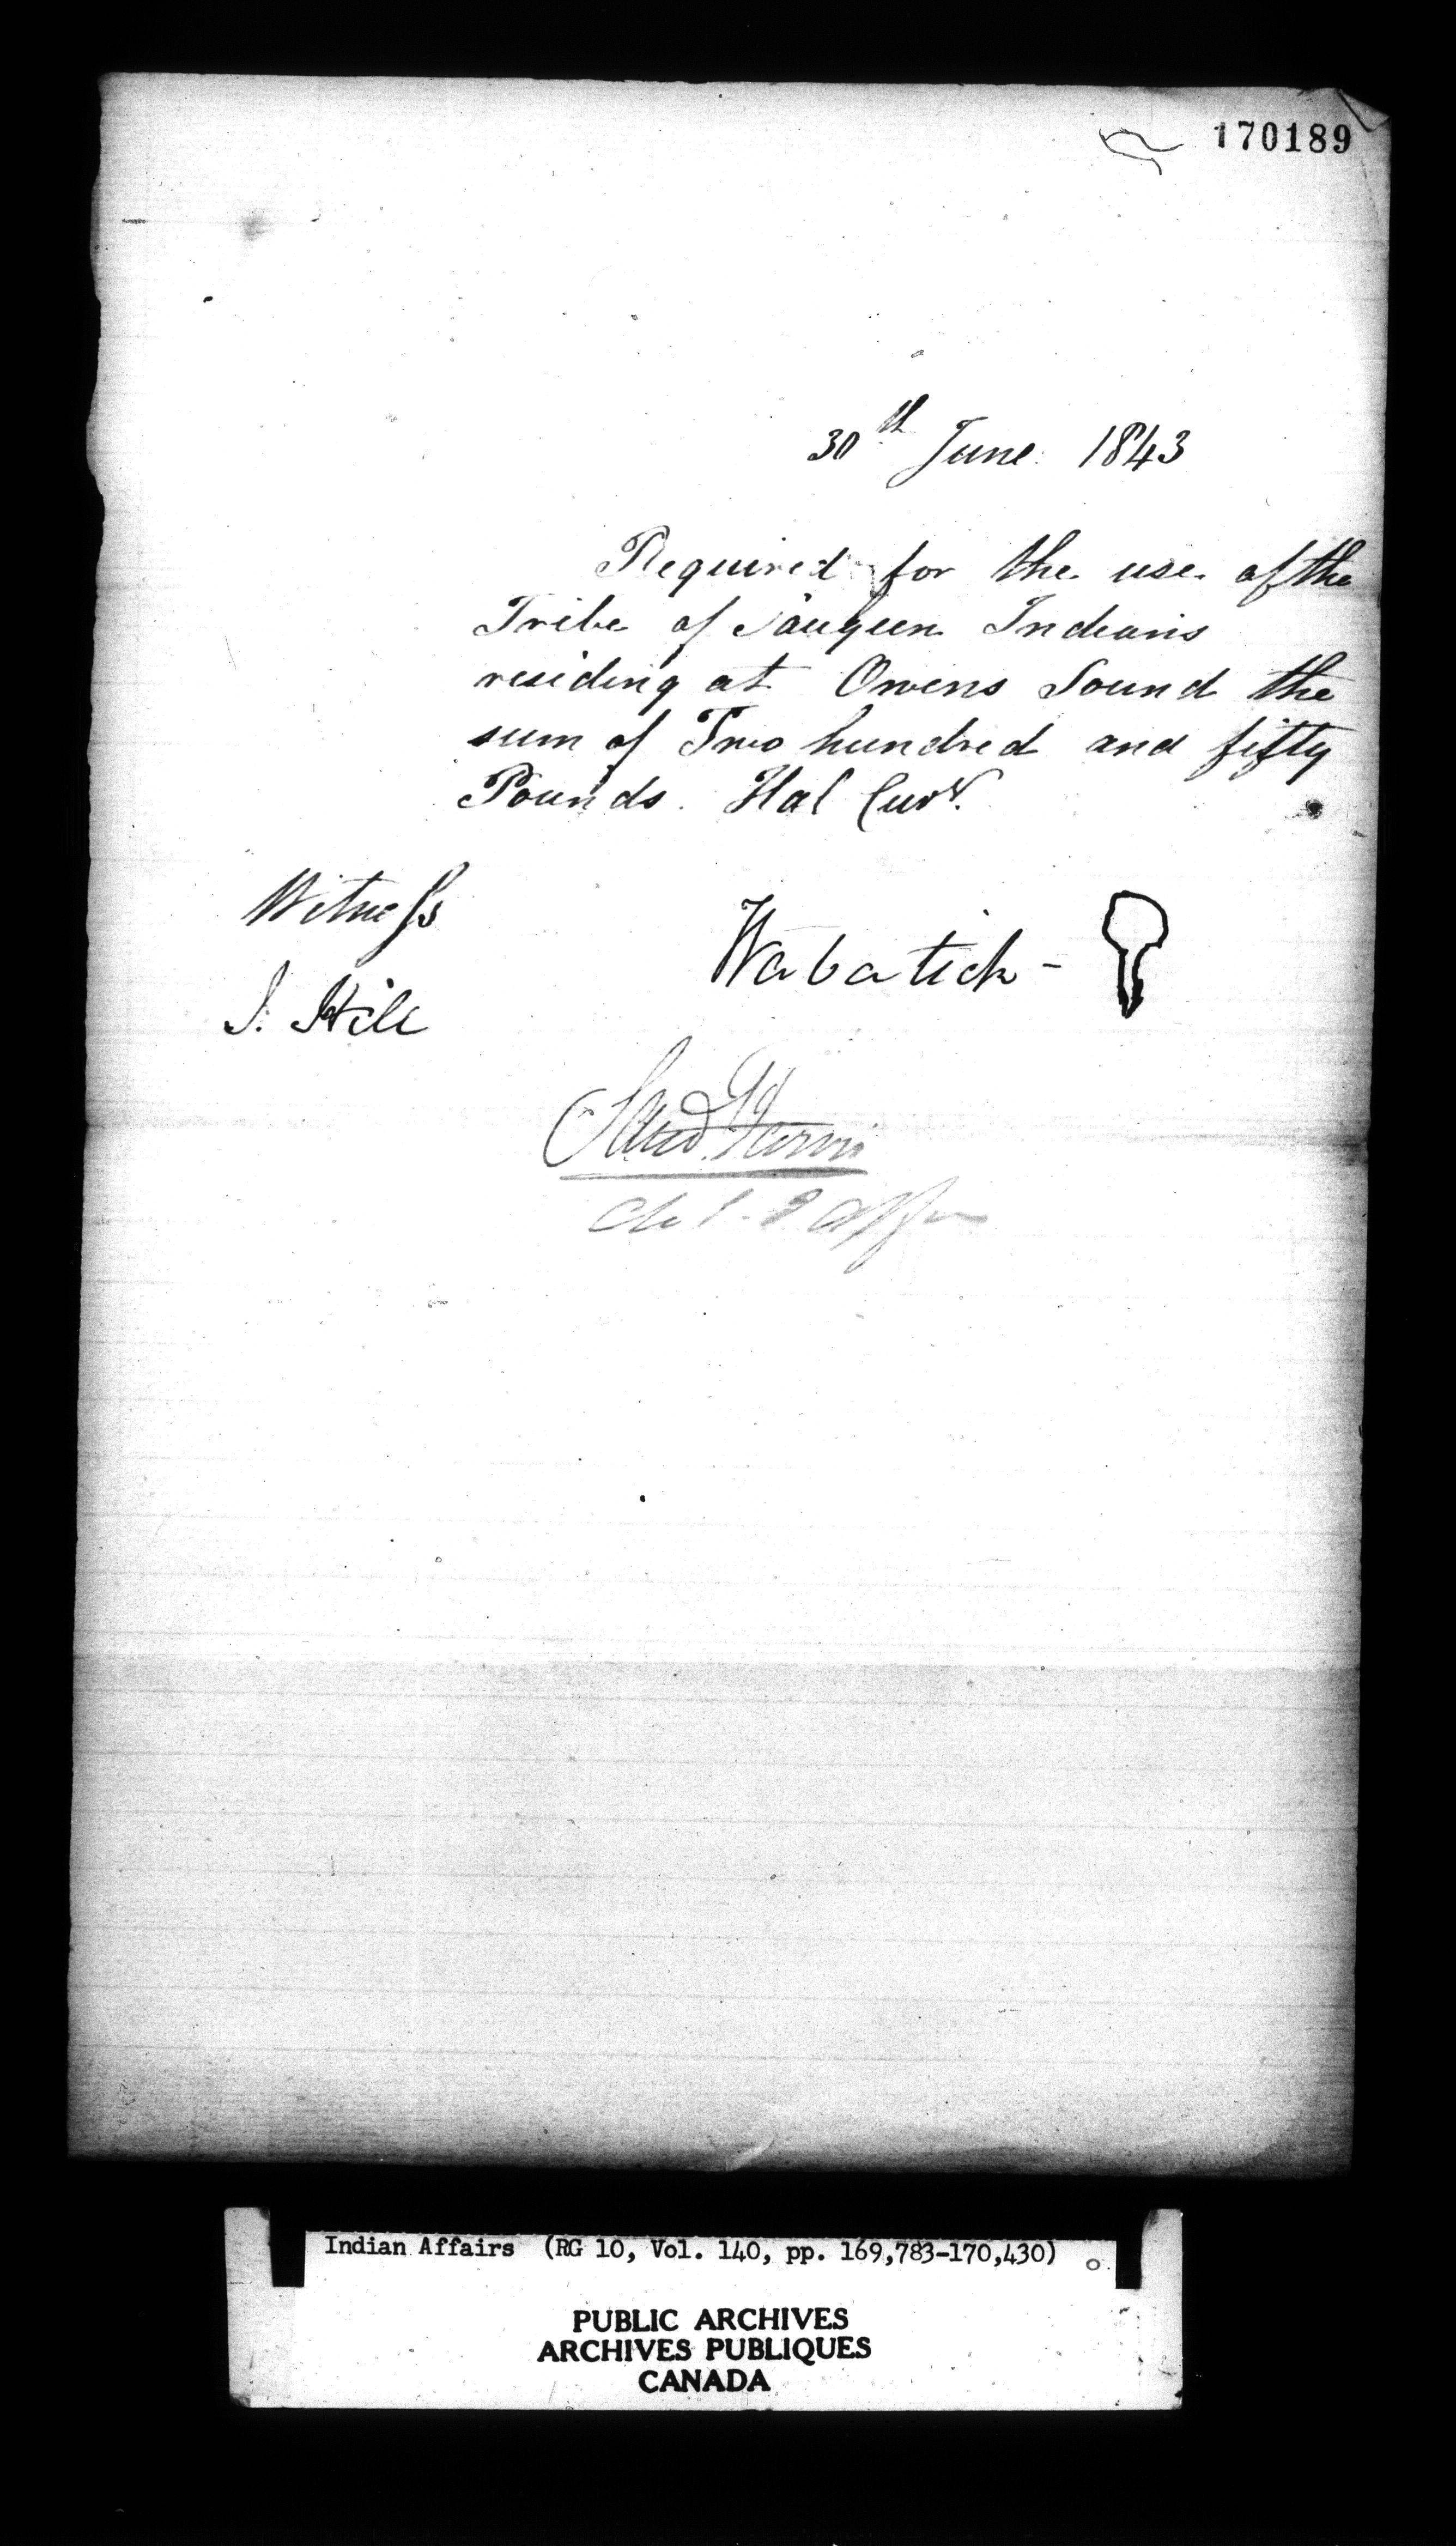 170189
30th June 1843
Required for the use of the
Tribe of Saugeen Indians
residing at Owens Sound the
sum of Two hundred and fifty
Pounds. Hal Cury.
Witness
J. Hill
Wabatick -
Indian Affairs (RG 10, Vol. 140, pp. 169,783-170,430)
PUBLIC ARCHIVES
ARCHIVES PUBLIQUES
CANADA